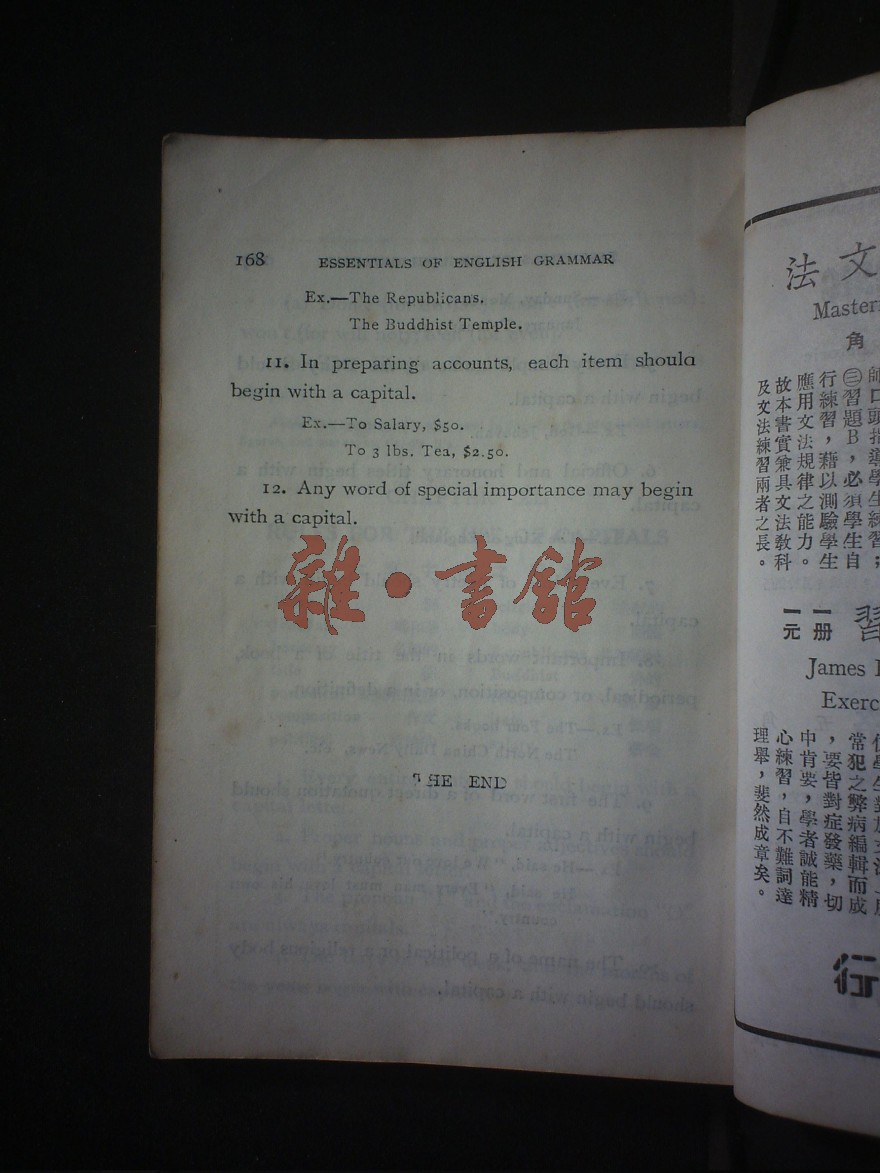 168 ESSENTIALS OF ENGLISH GRAMMAR
Ex.—The Republicans.
The Buddhist Temple.
11. In preparing accounts, each item should
begin with a capital.
Ex.—To Salary, $50.
To 3 lbs. Tea, $2.50.
12. Any word of special importance may begin
with a capital.
雜·書館
THE END
文
法
Master
角
師口頭指導學生練習；
㊂習題B，必須學生自
行練習，藉以測驗學生
應用文法規律之能力。
故本書實兼具文法教科
及文法練習兩者之長。
習
一册
一元
James
Exerc
常犯之弊病編輯而成
，要皆對症發藥，切
中肯要，學者誠能精
心練習，自不難詞達
理舉，斐然成章矣。
行